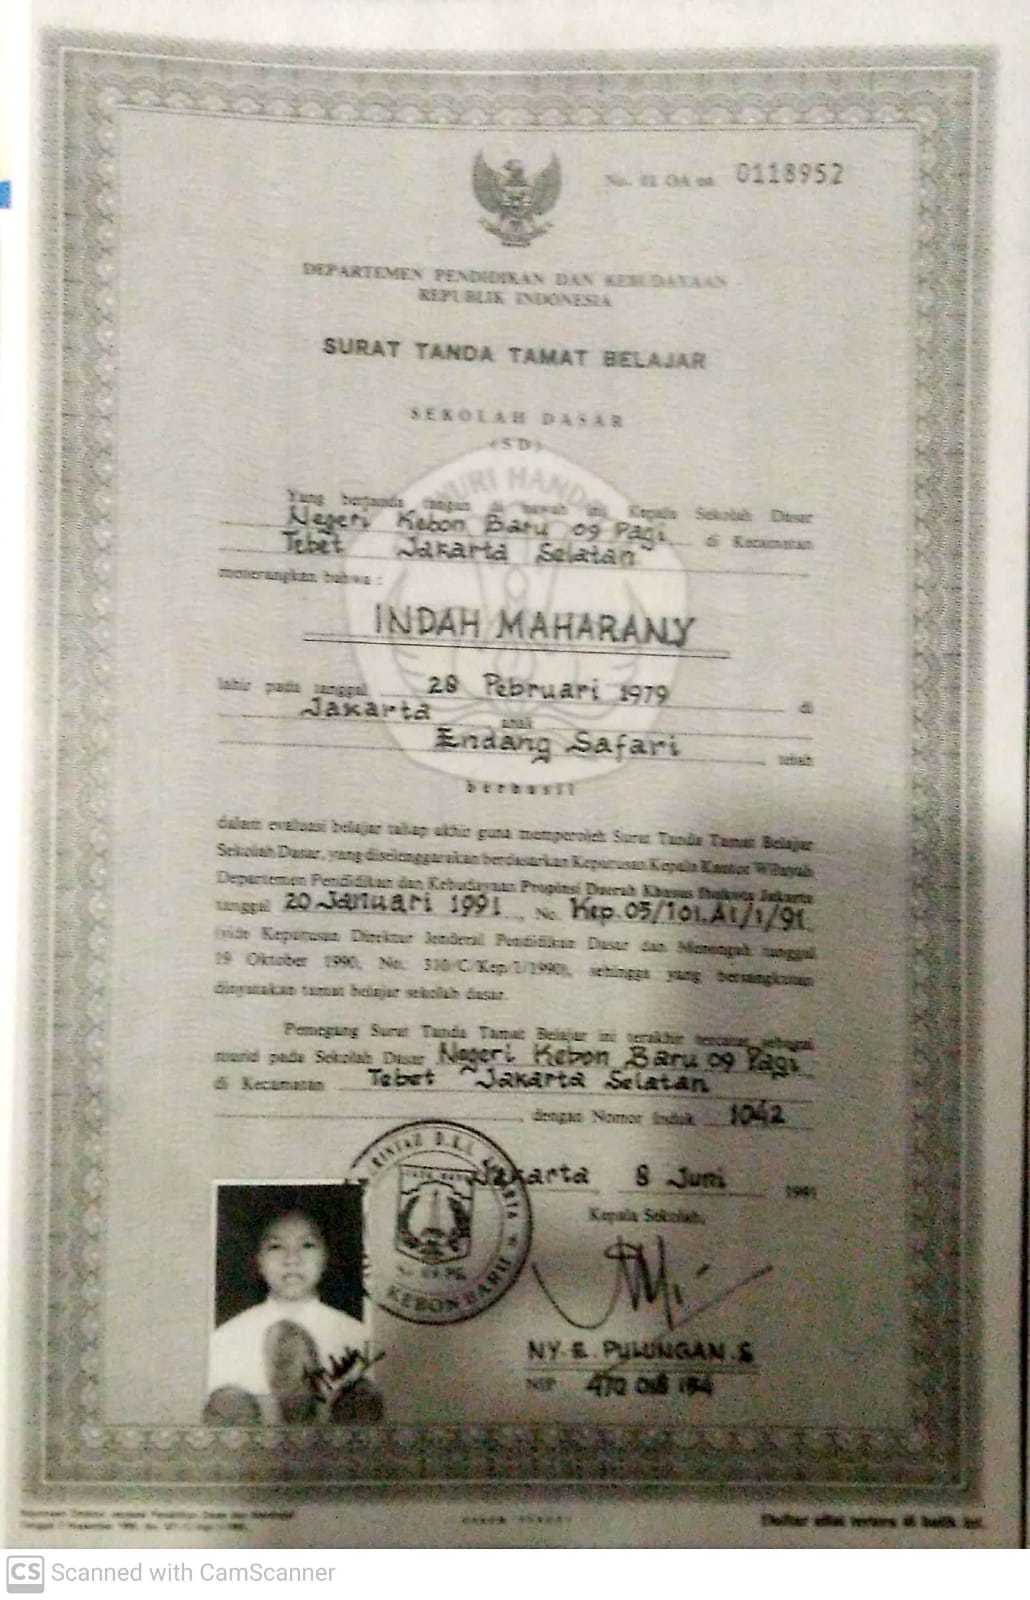 No. 01 OA oa 0118952
DEPARTEMEN PENDIDIKAN DAN KEBUDAYAAN
REPUBLIK INDONESIA
SURAT TANDA TAMAT BELAJAR
SEKOLAH DASAR
(SD)
Yang bertanda tangan di bawah ini, Kepala Sekolah Dasar
Negeri Kebon Baru 09 Pagi di Kecamatan
Tebet Jakarta Selatan
menerangkan bahwa :
INDAH MAHARANY
lahir pada tanggal 28 Pebruari 1979 di
Jakarta anak
Endang Safari telah
berhasil
dalam evaluasi belajar tahap akhir guna memperoleh Surat Tanda Tamat Belajar
Sekolah Dasar, yang diselenggarakan berdasarkan Keputusan Kepala Kantor Wilayah
Departemen Pendidikan dan Kebudayaan Propinsi Daerah Khusus Ibukota Jakarta
tanggal 20 Januari 1991, No. Kep.05/101.A1/1/91.
(vide Keputusan Direktur Jenderal Pendidikan Dasar dan Menengah tanggal
19 Oktober 1990, No. 310/C/Kep/I/1990), sehingga yang bersangkutan
dinyatakan tamat belajar sekolah dasar.
Pemegang Surat Tanda Tamat Belajar ini terakhir tercatat sebagai
murid pada Sekolah Dasar Negeri Kebon Baru 09 Pagi
di Kecamatan Tebet Jakarta Selatan
, dengan Nomor Induk 1042
Jakarta 8 Juni 1991
Kepala Sekolah,
KEBON BARU
NY. E. PULUNGAN. S
NIP 470 018 154
Daftar nilai tertera di balik ini.
CS Scanned with CamScanner